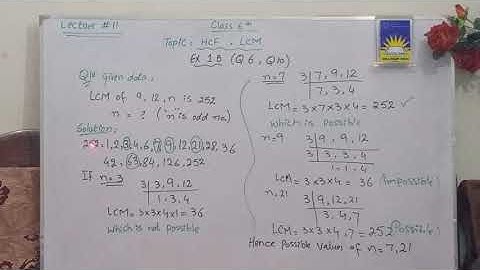 Lecture #11
Class 6th
Topic: HCF , LCM
Ex 1B (Q6, Q10)
Q10 given data:
LCM of 9, 12, n is 252
n = ? ("n" is odd no.)
Solution:
1, 2, 3, 4, 6, 7, 9, 12, 21, 28, 36
42, 63, 84, 126, 252
If n=3
3 | 3, 9, 12
1, 3, 4
LCM = 3×3×4×1 = 36
which is not possible
n=7
3 | 7, 9, 12
7, 3, 4
LCM = 3×7×3×4 = 252 ✓
which is possible
n=9
3 | 9, 9, 12
3 | 3, 3, 4
1, 1, 4
LCM = 3×3×4 = 36 (impossible)
n, 21
3 | 9, 12, 21
3, 4, 7
LCM = 3×3×4, 7 = 252 (Possible)
Hence Possible values of n = 7, 21